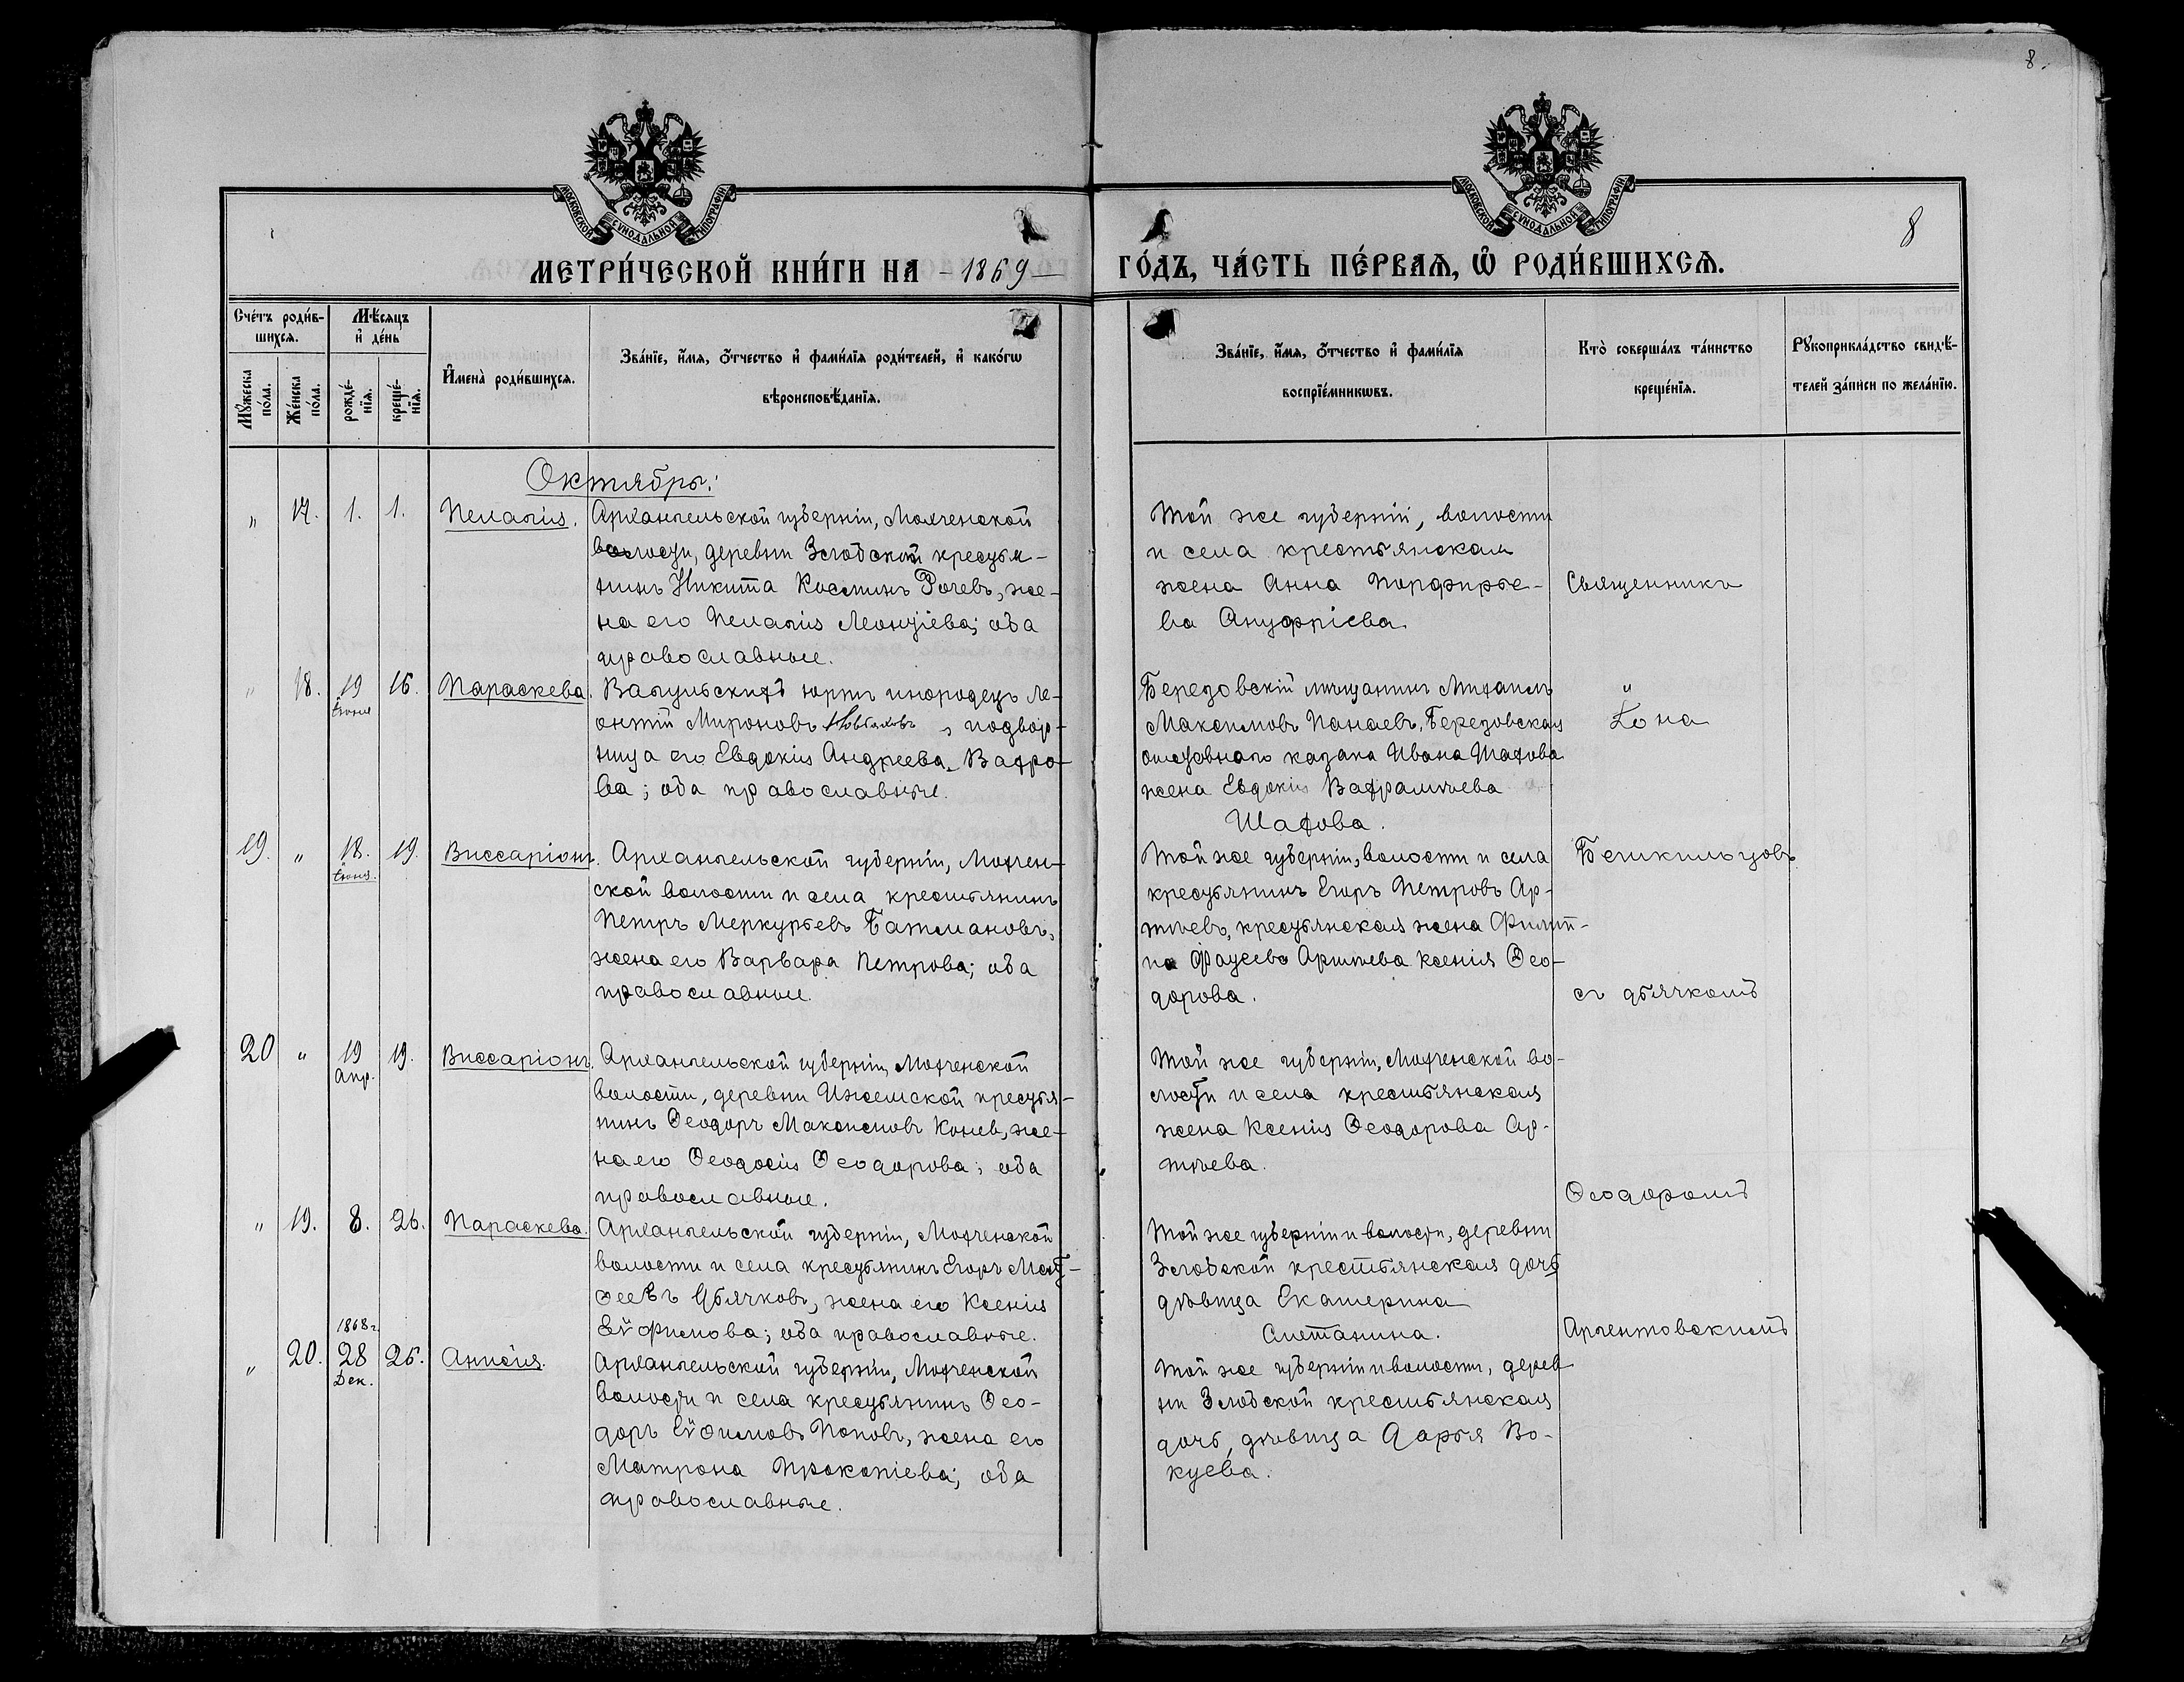 8.
МОСКОВСКОЙ СѴНОДАЛЬНОЙ ТИПОГРАФІИ
МОСКОВСКОЙ СѴНОДАЛЬНОЙ ТИПОГРАФІИ
8
МЕТРИ́ЧЕСКОЙ КНИ́ГИ НА - 1869 -
ГО́ДЪ, ЧА́СТЬ ПЕ́РВАѦ, Ѽ РОДИ́ВШИХСѦ.
Сче́тъ роди́в-
шихсѧ.
Мꙋ́жеска по́ла.
Же́нска по́ла.
Мѣ́сѧцъ
и҆ де́нь
рожде́-
нїѧ.
креще́-
нїѧ.
И҆мена̀ роди́вшихсѧ.
Зва́нїе, и҆́мѧ, ѻ҆́тчество и҆ фами́лїѧ роди́телей, и҆ како́гѡ
вѣроисповѣ́данїѧ.
Зва́нїе, и҆́мѧ, ѻ҆́тчество и҆ фами́лїѧ
воспрїе́мникѡвъ.
Кто̀ соверша́лъ та́инство
креще́нїѧ.
Рꙋкоприкла́дство свидѣ́-
телей за́писи по жела́нїю.
Октябрь:
" 17. 1. 1. Пелагія. Архангельской губерніи, Мохченской
волости, деревни Злобской крестья-
нинъ Никита Косминъ Рочевъ, же-
на его Пелагія Леонтіева; оба
православные.
Той же губерніи, волости
и села крестьянская
жена Анна Порфирье-
ва Ануфріева
Священникъ
" 18. 19 іюня 16. Параскева. Вагульскихъ юртъ инородецъ Ле-
онтій Мироновъ , подвор-
ница его Евдокія Андреева
ва; оба православные.
Березовскій мѣщанинъ Михаилъ
Максимовъ Панаевъ, Березовская
отставнаго казака Ивана Шахова
жена Евдокія Вахрамѣева
Шахова.
"
Іона
19. " 18. іюня. 19. Виссаріонъ. Архангельской губерніи, Мохчен-
ской волости и села крестьянинъ
Петръ Меркурьевъ Батмановъ,
жена его Варвара Петрова; оба
православные.
Той же губерніи, волости и села
крестьянинъ Егоръ Петровъ Ар-
тѣевъ, крестьянская жена Филип-
па Артѣева Ксенія Ѳео-
дорова.
Бешкильцовъ
съ дьячкомъ
20 " 19 Апр. 19. Виссаріонъ. Архангельской губерніи, Мохченской
волости, деревни Ижемской крестья-
нинъ Ѳеодоръ Максимовъ Конев, же-
на его Ѳеодосія Ѳеодорова; оба
православные.
Той же губерніи, Мохченской во-
лости и села крестьянская
жена Ксенія Ѳеодорова Ар-
тѣева.
Ѳеодоромъ
" 19. 8. 26. Параскева. Архангельской губерніи, Мохченской
волости и села крестьянинъ Егоръ Мат-
ѳеевъ Дьячковъ, жена его Ксенія
Еѵфимова; оба православные.
Той же губерніи и волости, деревни
Злобской крестьянская дочь
дѣвица Екатерина
Сметанина.
Аргентовскимъ
" 20. 1868 г. 28 Дек. 26. Анисія. Архангельской губерніи, Мохченской
волости и села крестьянинъ Ѳео-
доръ Еѵѳимовъ Поповъ, жена его
Матрона Прокопіева; оба
православные.
Той же губерніи и волости, дерев
ни Злобской крестьянская
дочь, дѣвица Дарья Во-
куева.